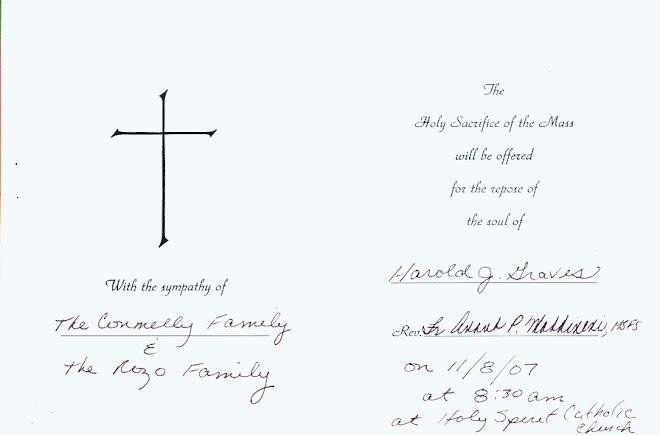 With the sympathy of
The Connelly Family
&
The Rozo Family
The
Holy Sacrifice of the Mass
will be offered
for the repose of
the soul of
Harold J. Graves
Rev. Fr Anand P. MSFS
on 11/8/07
at 8:30 am
at Holy Spirit Catholic
Church